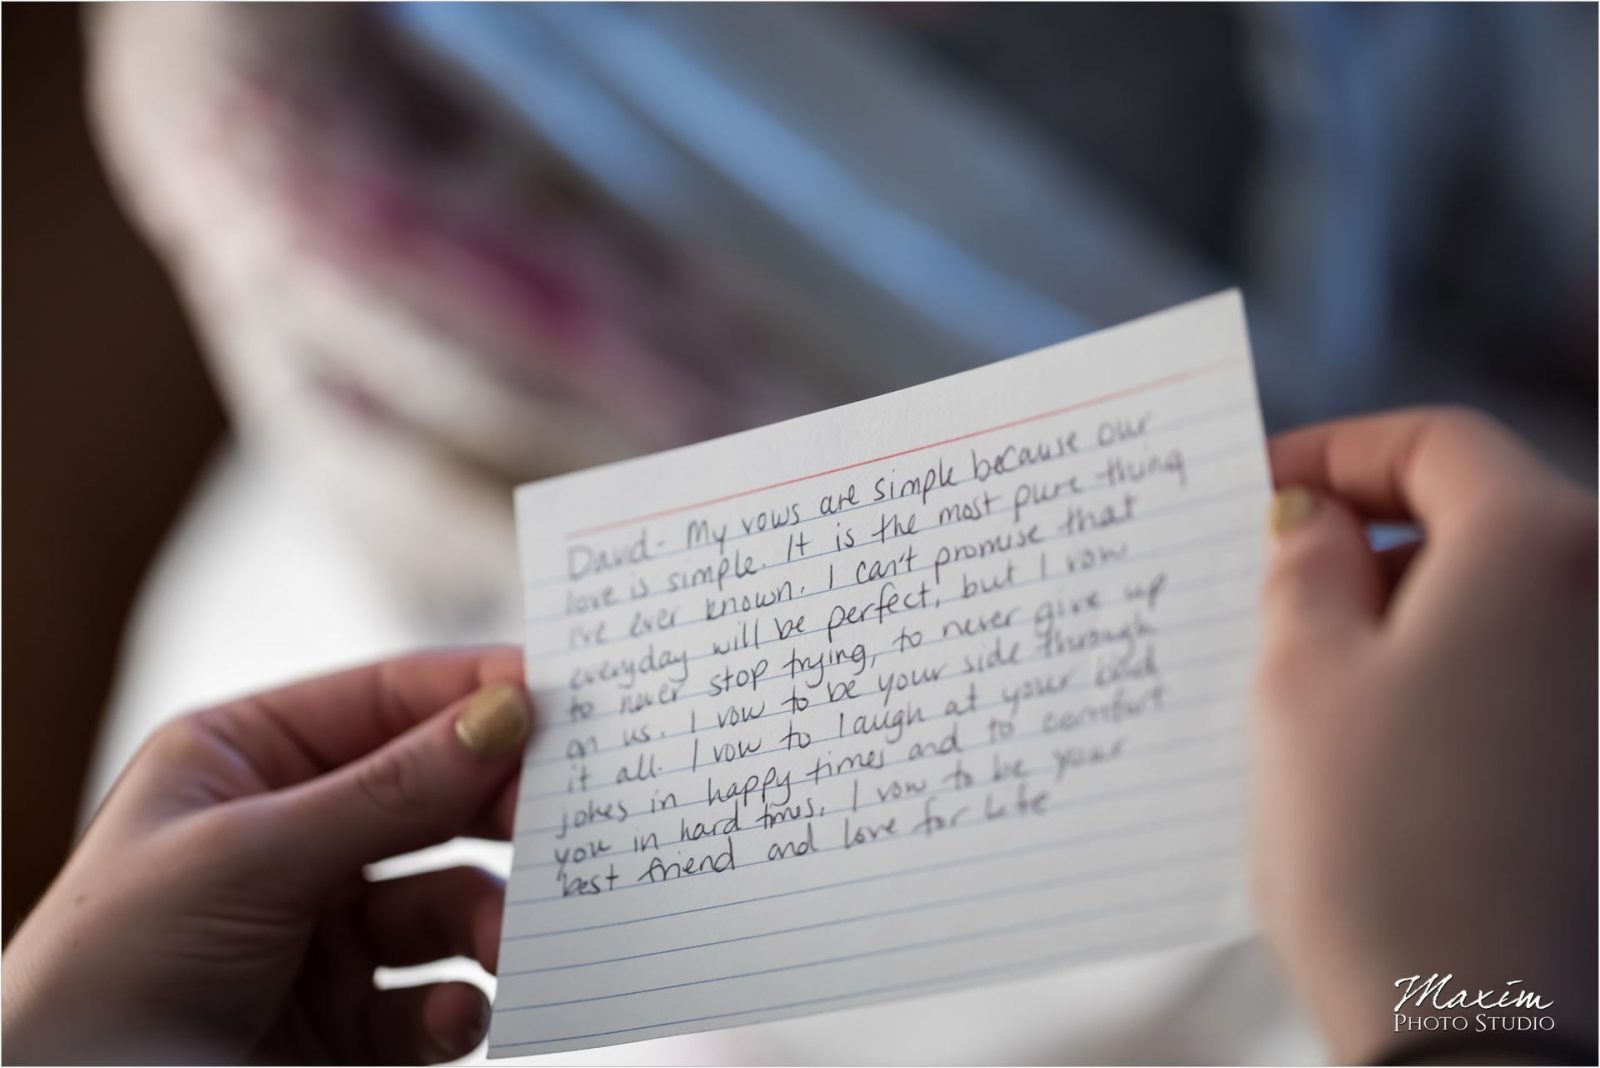 David - My vows are simple because our
love is simple. It is the most pure thing
I've ever known. I can't promise that
everyday will be perfect, but I vow
to never stop trying, to never give up
on us. I vow to be your side through
it all. I vow to laugh at your bad
jokes in happy times and to comfort
you in hard times. I vow to be your
best friend and love for life
Maxim
PHOTO STUDIO